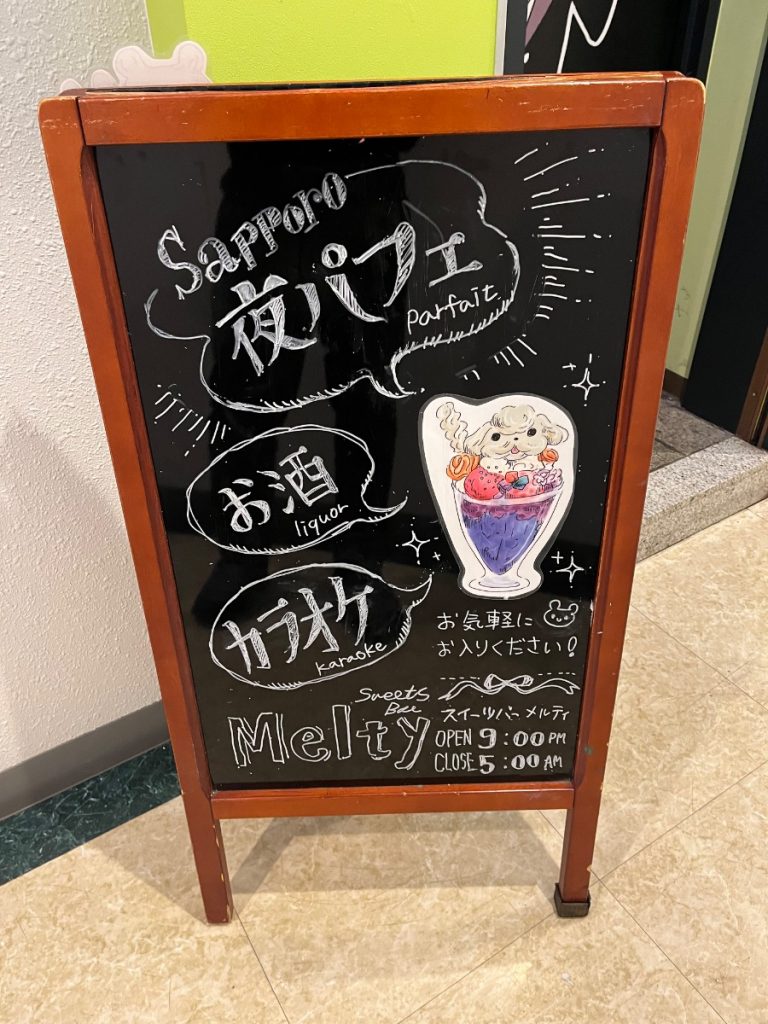 Sapporo
夜パフェ
parfait
お酒
liquor
カラオケ
karaoke
お気軽に
お入りください!
Sweets
Bar
Melty
スイーツバー メルティ
OPEN 9:00 PM
CLOSE 5:00 AM